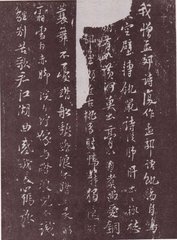 我憎孟郊詩復作孟郊語飢腸自鳴
空壁轉飢鼠詩從肺腑出出輒
河魚出膏以自煮尚愛銅
近古桃弓射鴨罷獨速短
蓑舞不憂踏船翻踏浪不踏土吳姬
霜雪白赤脚浣白紵嫁與踏浪兒不識
離別苦歌君江湖曲感我長羈旅